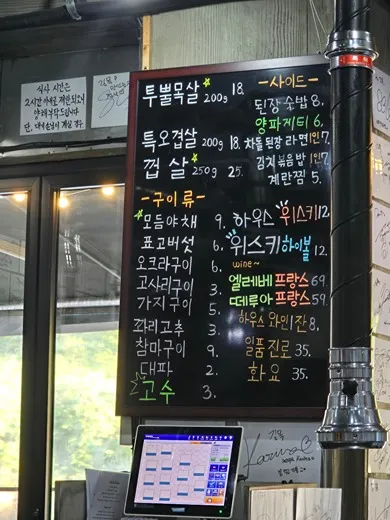 식사 시간은
2시간 이내로 제한되오니
양해부탁드립니다
투뿔목살 200g 18.
특오겹살 200g 18.
껍살 250g 25.
-구이류-
모듬야채 9.
표고버섯 6.
오크라구이 6.
고사리구이 3.
가지구이 5.
꽈리고추 3.
참마구이 9.
대파 2.
고수 3.
-사이드-
된장술밥 8.
양파게티 6.
차돌된장라면 1인 7.
김치볶음밥 1인 7.
계란찜 5.
하우스 위스키 12.
위스키하이볼 12.
wine~
엘레베 프랑스 69.
떼루아 프랑스 59.
하우스 와인 1잔 8.
일품진로 35.
화요 35.